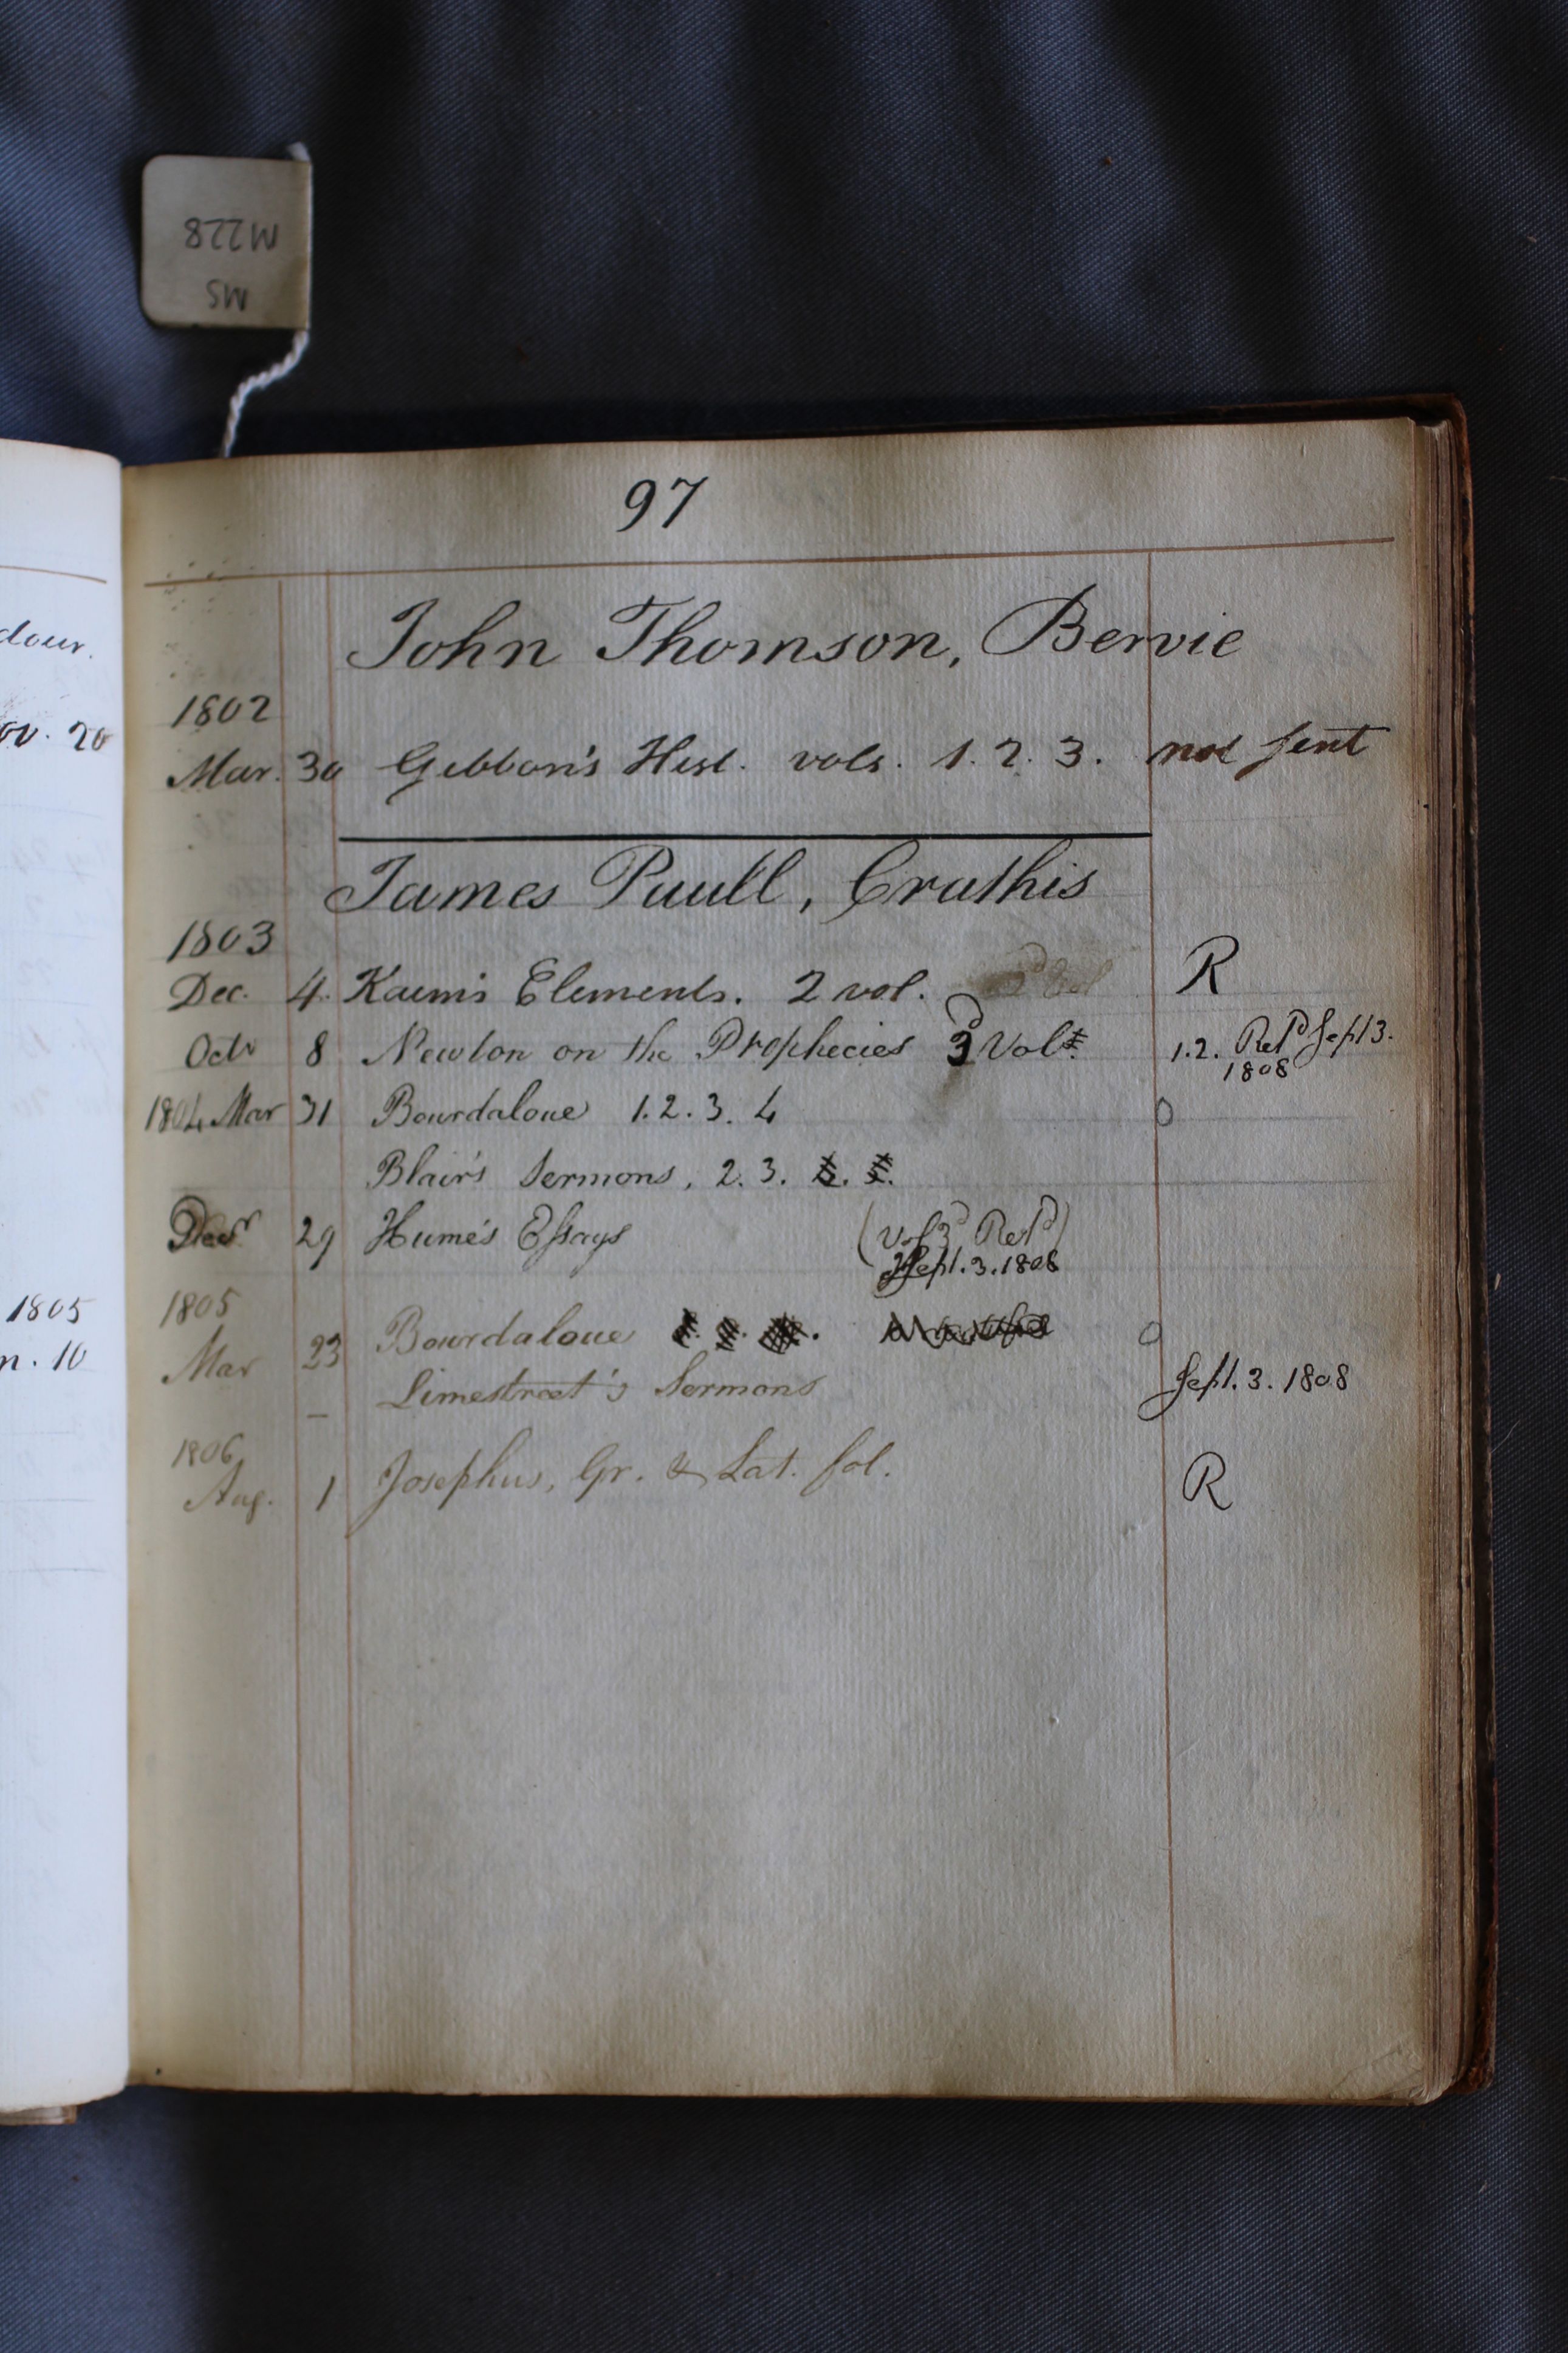 M228
MS
dour.
ov. 20
1805
n. 10
97
John Thomson, Bervie
1802
Mar. 30 Gibbon's Hist. vols. 1. 2. 3. not sent
James Paull, Crathis
1803
Dec. 4. Kaem's Elements. 2 vol. R
Octr 8 Newton on the Prophecies 3d Vol. 1.2. Retd Sept 3.
1808
1804 Mar 31 Bourdaloue 1. 2. 3. 4 0
Blair's Sermons, 2. 3.
Decr 29 Hume's Essays (Vol 3d Retd)
Sept. 3. 1808
1805
Mar 23 Bourdaloue 0
– Limestreet's Sermons Sept. 3. 1808
1806
Aug. 1 Josephus, Gr. & Lat. fol. R